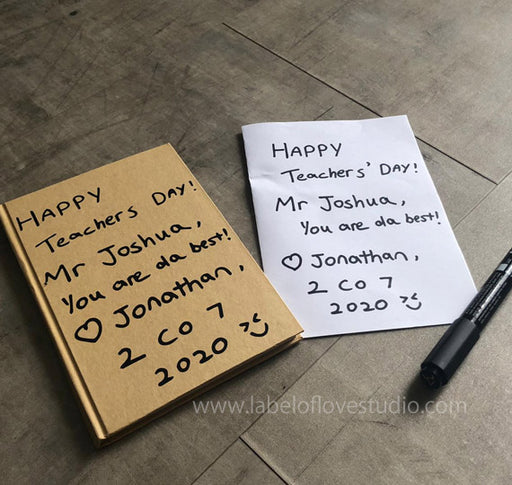 HAPPY
Teachers DAY!
Mr Joshua,
You are da best!
♡ Jonathan,
2 CO 7
2020
HAPPY
Teachers' DAY!
Mr Joshua,
You are da best!
♡ Jonathan,
2 CO 7
2020
www.labeloflovestudio.com